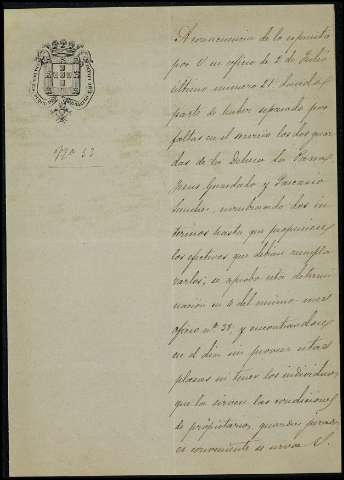 Nº 53
A consecuencia de lo espuesto
por V. en oficio de 2 de Julio
ultimo numero 21 dando
parte de haber separado por
faltas en el servicio los dos guar
das de la Dehesa la
Guardado y Pascasio
Sanchez, nombrando dos in
terinos hasta que propusiese
los efectivos que debian reempla
zarlos; se aprobó esta determi
nacion en 4 del mismo mes
oficio nº 38 y encontrandose
en el dia sin proveer estas
plazas ni tener los individuos
que la sirven las condiciones
de propietarios, guardas jurados
es conveniente se sirva V.